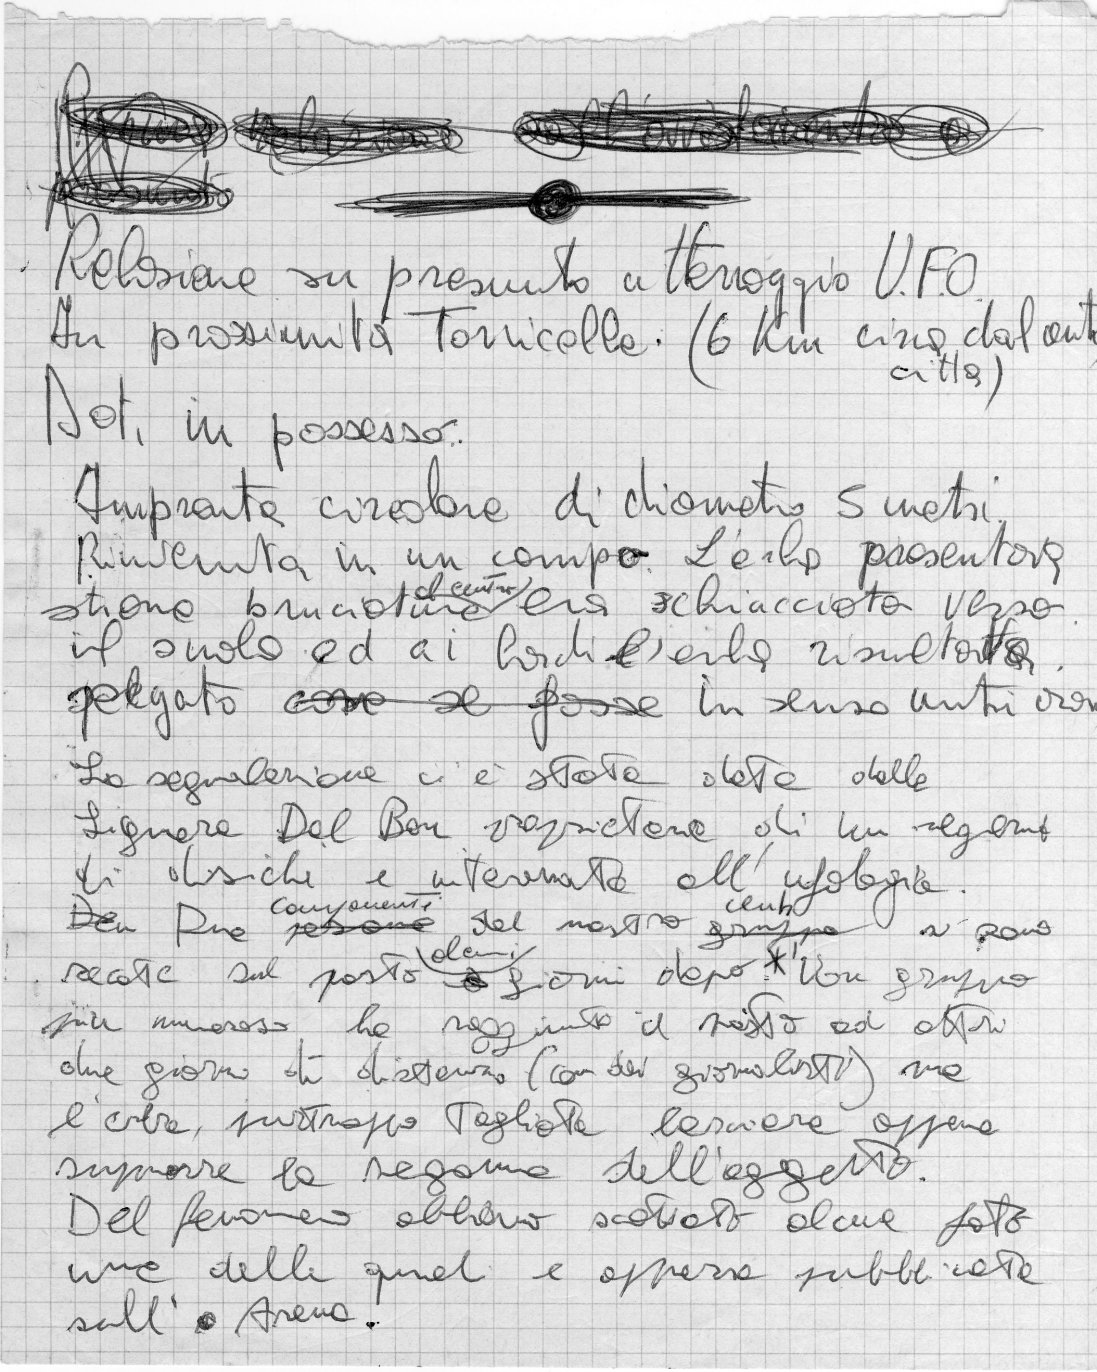 relazione sull'avvistamento o
presunto
Relazione su presunto atterraggio U.F.O.
In prossimità Torricelle. (6 Km circa dal
città)
Dat. in possesso.
Impronta circolare di diametro 5 metri.
Rinvenuta in un campo. L'erba presentava
al centro
strane bruciature era schiacciata verso
il suolo ed ai bordi l'erba risultava
piegato come se fosse in senso anti
La segnalazione ci è stata data dalla
Signora Dal Bon proprietaria di un
di e interessata all'ufologia.
componenti centro
Due persone del nostro gruppo si sono
alcuni
recati sul posto giorni dopo * Un gruppo
più numeroso ha raggiunto il posto ad altri
due giorni di distanza (con dei giornalisti) ma
l'erba, purtroppo tagliata lasciava appena
supporre la sagoma dell'oggetto.
Del fenomeno abbiamo scattato alcune foto
una delle quali è apparsa pubblicata
sull' Arena.